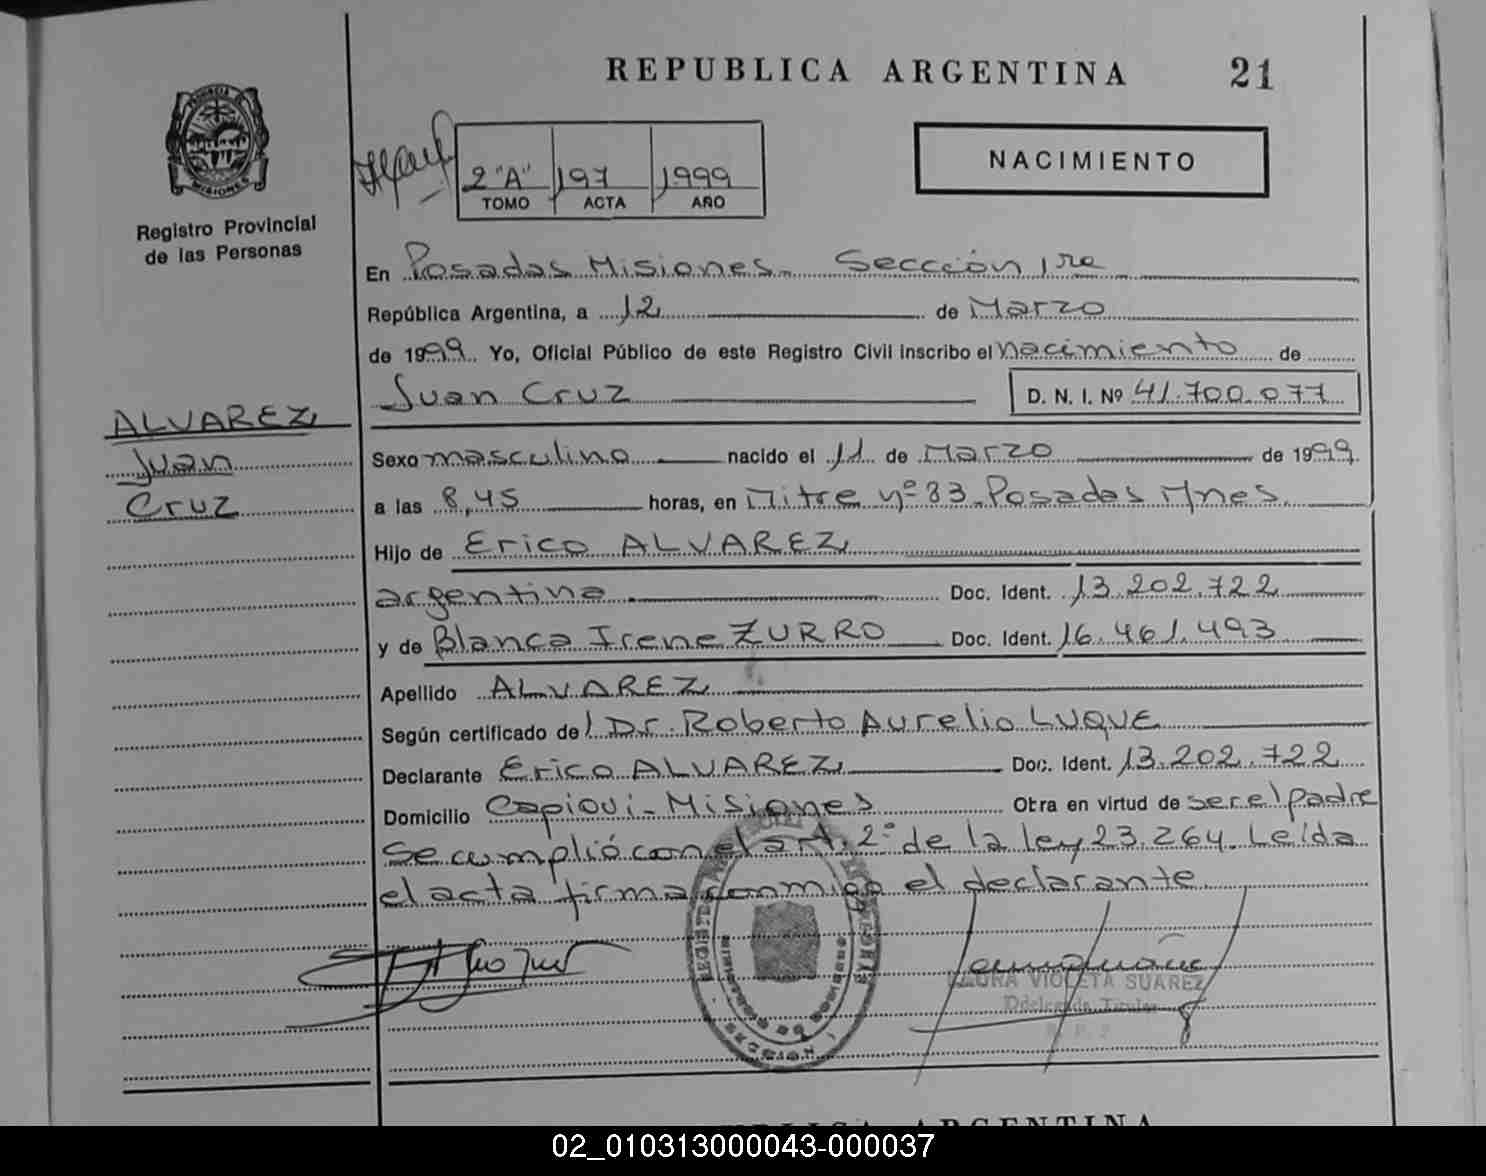 REPUBLICA ARGENTINA 21
PROVINCIA DE
MISIONES
Registro Provincial
de las Personas
2 "A" 197 1999
TOMO ACTA AÑO
NACIMIENTO
En Posadas Misiones. Sección 1ra
República Argentina, a 12 de Marzo
de 1999 Yo, Oficial Público de este Registro Civil inscribo el nacimiento de
Juan Cruz D. N. I. Nº 41.700.077
ALVAREZ
Juan
Cruz
Sexo masculino nacido el 11 de Marzo de 1999
a las 8,45 horas, en Mitre Nº 83. Posadas Mnes.
Hijo de Erico ALVAREZ
argentina Doc. Ident. 13.202.722
y de Blanca Irene ZURRO Doc. Ident. 16.461.493
Apellido ALVAREZ
Según certificado del Dr. Roberto Aurelio LUQUE
Declarante Erico ALVAREZ Doc. Ident. 13.202.722
Domicilio Capioui - Misiones Obra en virtud de ser el padre
Se cumplió con el art. 2º de la ley 23.264. Leída
el acta firma conmigo el declarante
LAURA VIOLETA SUAREZ
Ddelegada Titular
SECCION 1
REPUBLICA ARGENTINA
02_010313000043-000037